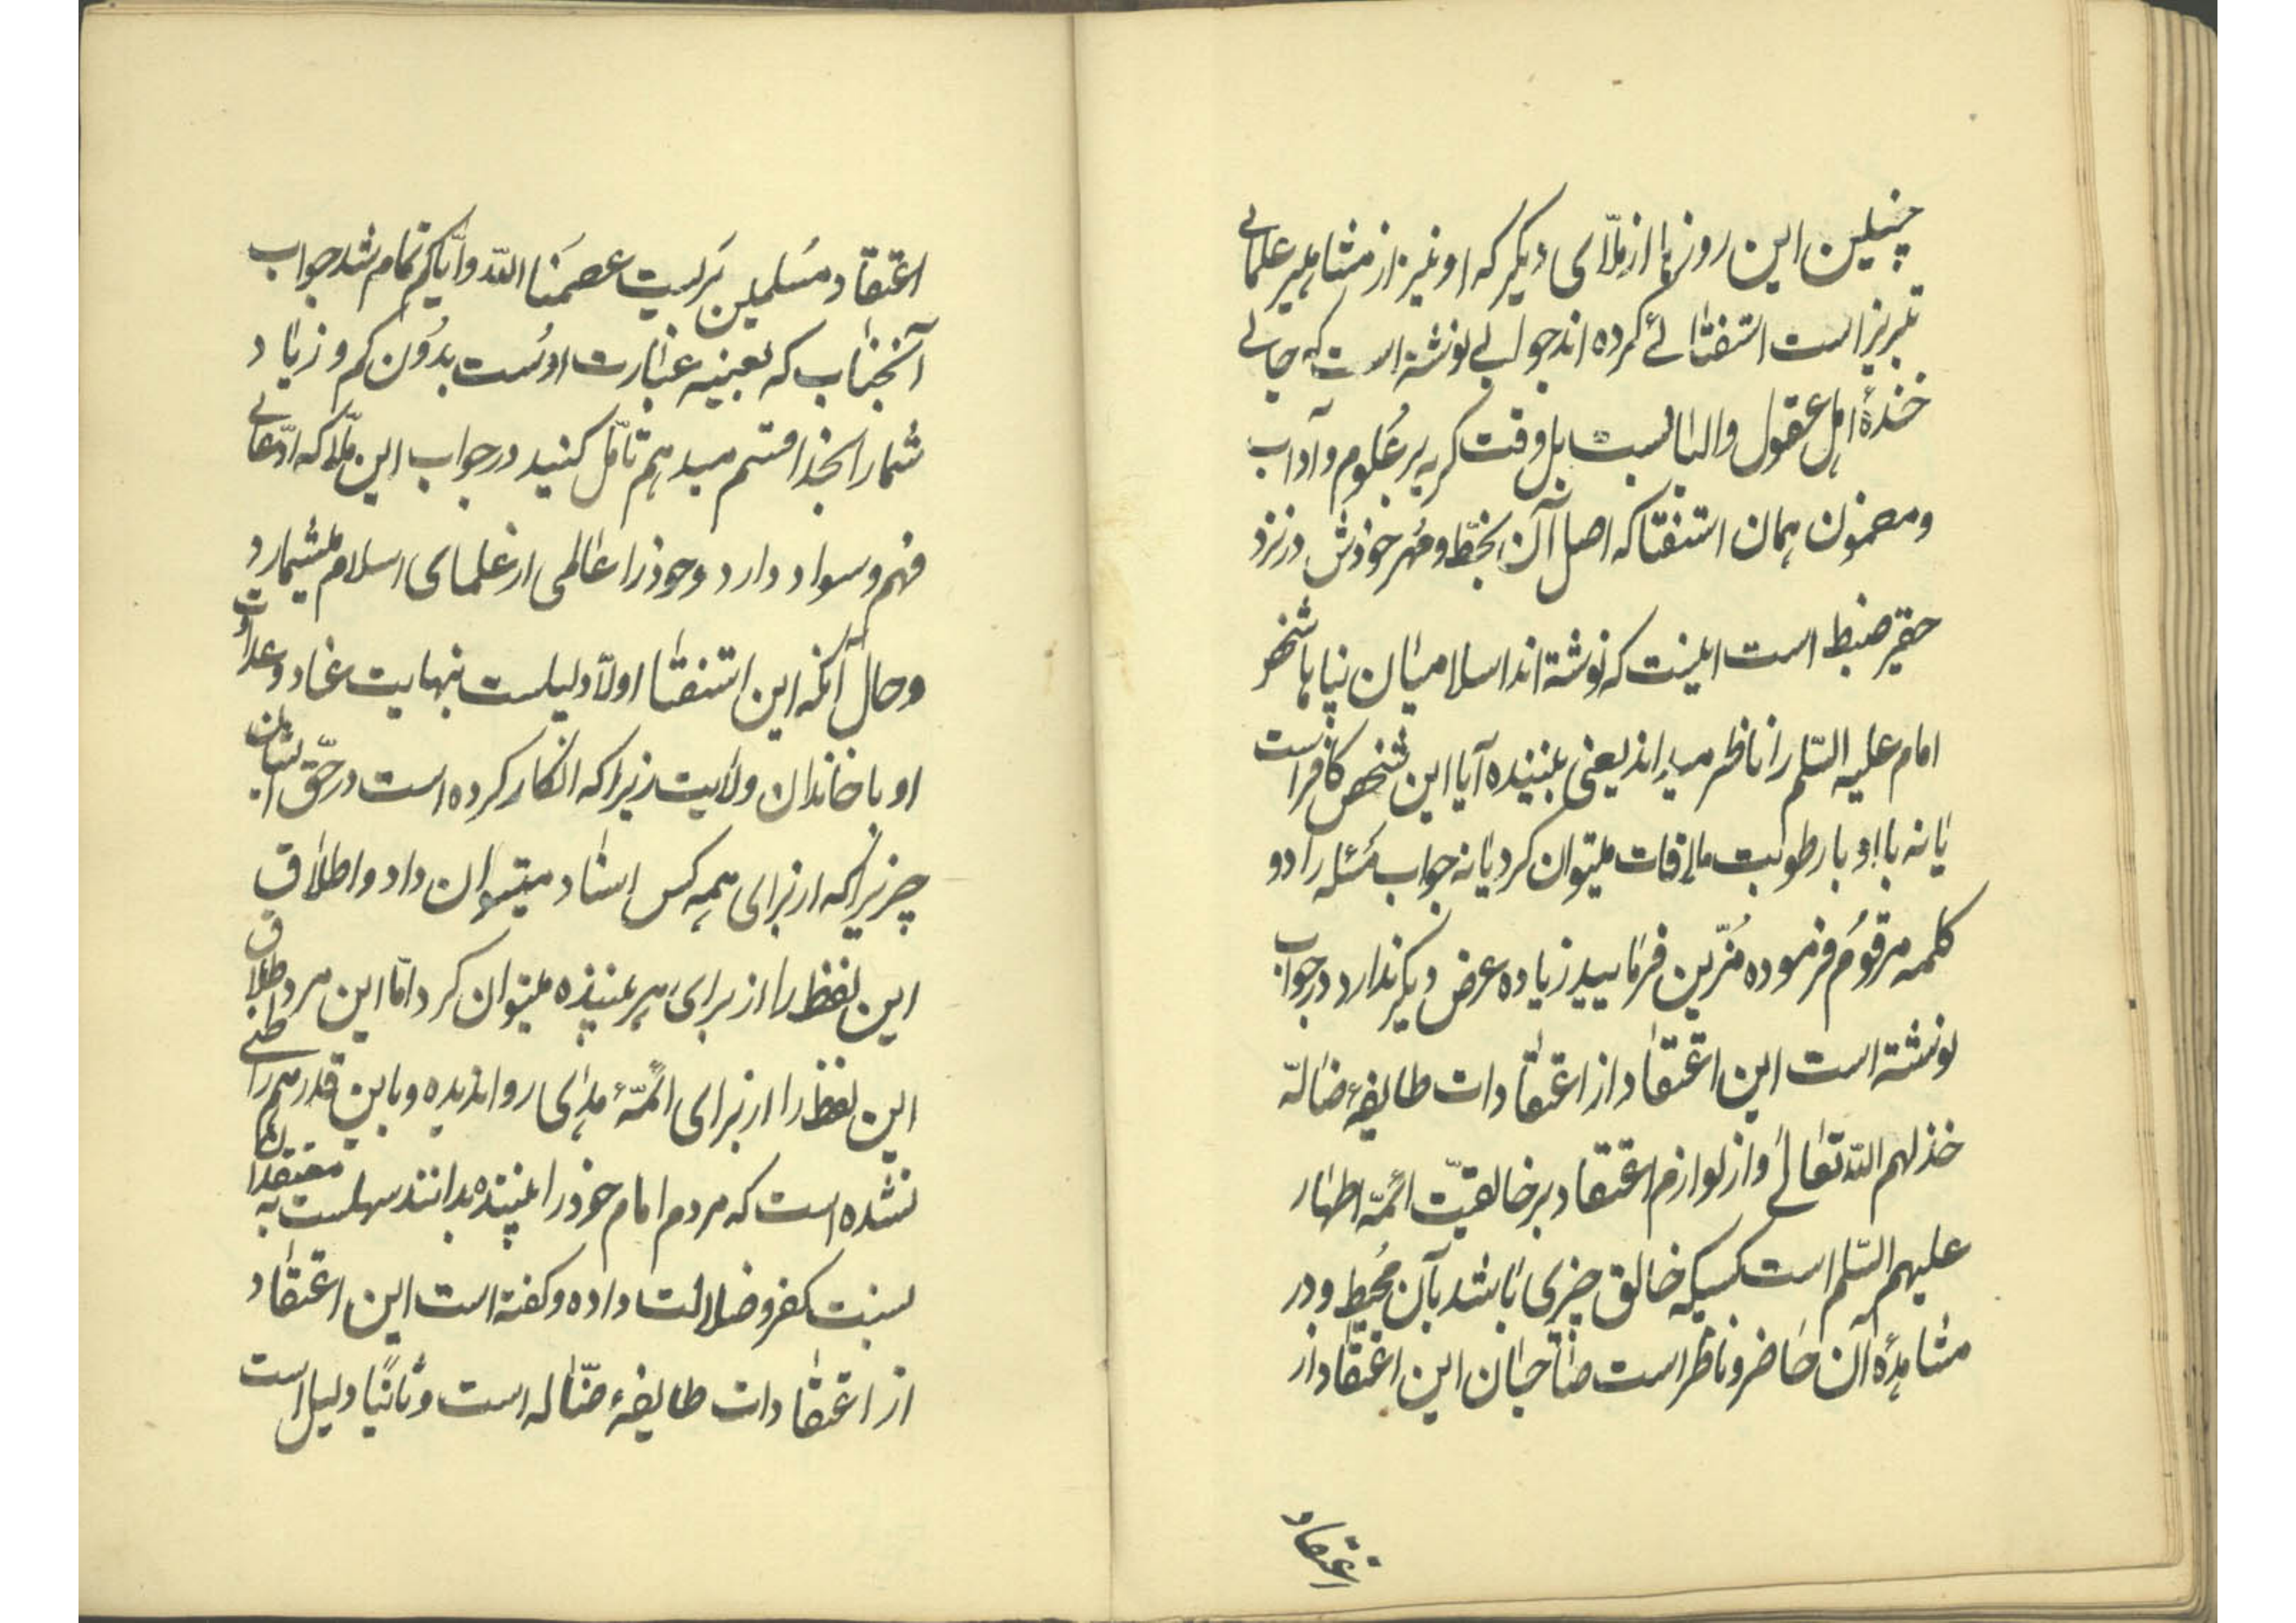 چنین این روزها از ملّای دیگر که او نیز از مشاهیر علمای
تبریز است استفتائی کرده‌اند جوابی نوشته است که جای
خندهٔ اهل عقول والبابست بل وقت گریه بر علوم و آداب
و مضمون همان استفتا که اصل آن بخطّ و مُهر خودش در نزد
حقیر ضبط است اینست که نوشته‌اند اسلامیان پناها شخصی
امام علیه السّلم را ناظر میداند یعنی بیننده آیا این شخص کافر است
یا نه با او با رطوبت ملاقات میتوان کرد یا نه جواب مسئله را دو
کلمه مرقوم فرموده مُزّین فرمایید زیاده عرض دیگر ندارد در جواب
نوشته است این اعتقاد از اعتقادات طایفهٔ ضالّه
خذلهم اللّه تعالی و از لوازم اعتقاد بر خالقیّت ائمّه اطهار
علیهم السّلم است کسیکه خالق چیزی باشد بآن مُحیط و در
مشاهدهٔ آن حاضر و ناظر است صاحبان این اعتقاد از
اعتقاد
اعتقاد مُسلمین بَریست عصمَنا اللّه وایّاکم تمام شد جواب
آنجناب که بعینه عبارت اوست بدُون کم و زیاد
شما را بخدا قسم میدهم تأمّل کنید در جواب این ملّا که ادّعای
فهم و سواد دارد و خود را عالمی از علمای اسلام میشمارد
و حال آنکه این استفتا اولاً دلیلست بنهایت عناد و عداوت
او با خاندان ولایت زیرا که انکار کرده است در حقّ ایشان
چیزیرا که از برای همه کس اسناد میتوان داد و اطلاق
این لفظ را از برای هر بیننده میتوان کرد امّا این مرد اطلاق
این لفظ را از برای ائمّهٔ هدای روا ندیده و باین قدر هم راضی
نشده است که مردم امام خود را بیننده بدانند سهلست به معتقدان آنها
نسبت کفر و ضلالت داده و گفته است این اعتقاد
از اعتقادات طایفهٔ ضّاله است و ثانیًا دلیل است